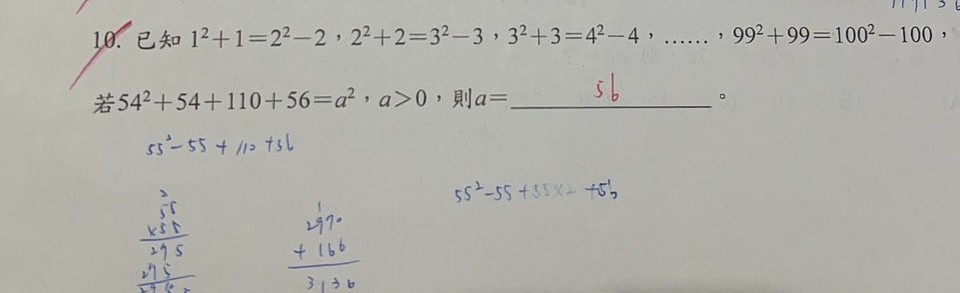 10. 已知 1²+1=2²−2，2²+2=3²−3，3²+3=4²−4，……，99²+99=100²−100，
若54²+54+110+56=a²，a>0，則a=56。
55²-55+110+56
55²-55+55×2+56
2
55
×55
275
275
1
2970
+ 166
3136